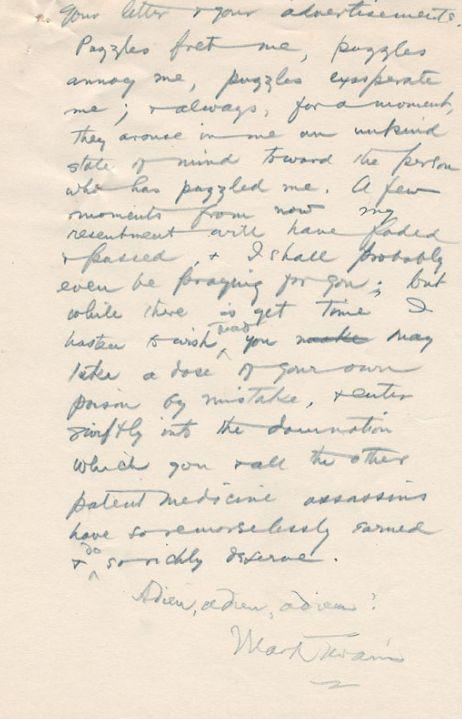 your letter & your advertisements.
Puzzles fret me, puzzles
annoy me, puzzles exasperate
me; & always, for a moment,
they arouse in me an unkind
state of mind toward the person
who has puzzled me. A few
moments from now my
resentment will have faded
& passed, & I shall probably
even be praying for you; but
while there is yet time I
hasten to wish that you make may
take a dose of your own
poison by mistake, & enter
swiftly into the damnation
which you & all the other
patent medicine assassins
have so remorselessly earned
& do so richly deserve.
Adieu, adieu, adieu!
Mark Twain